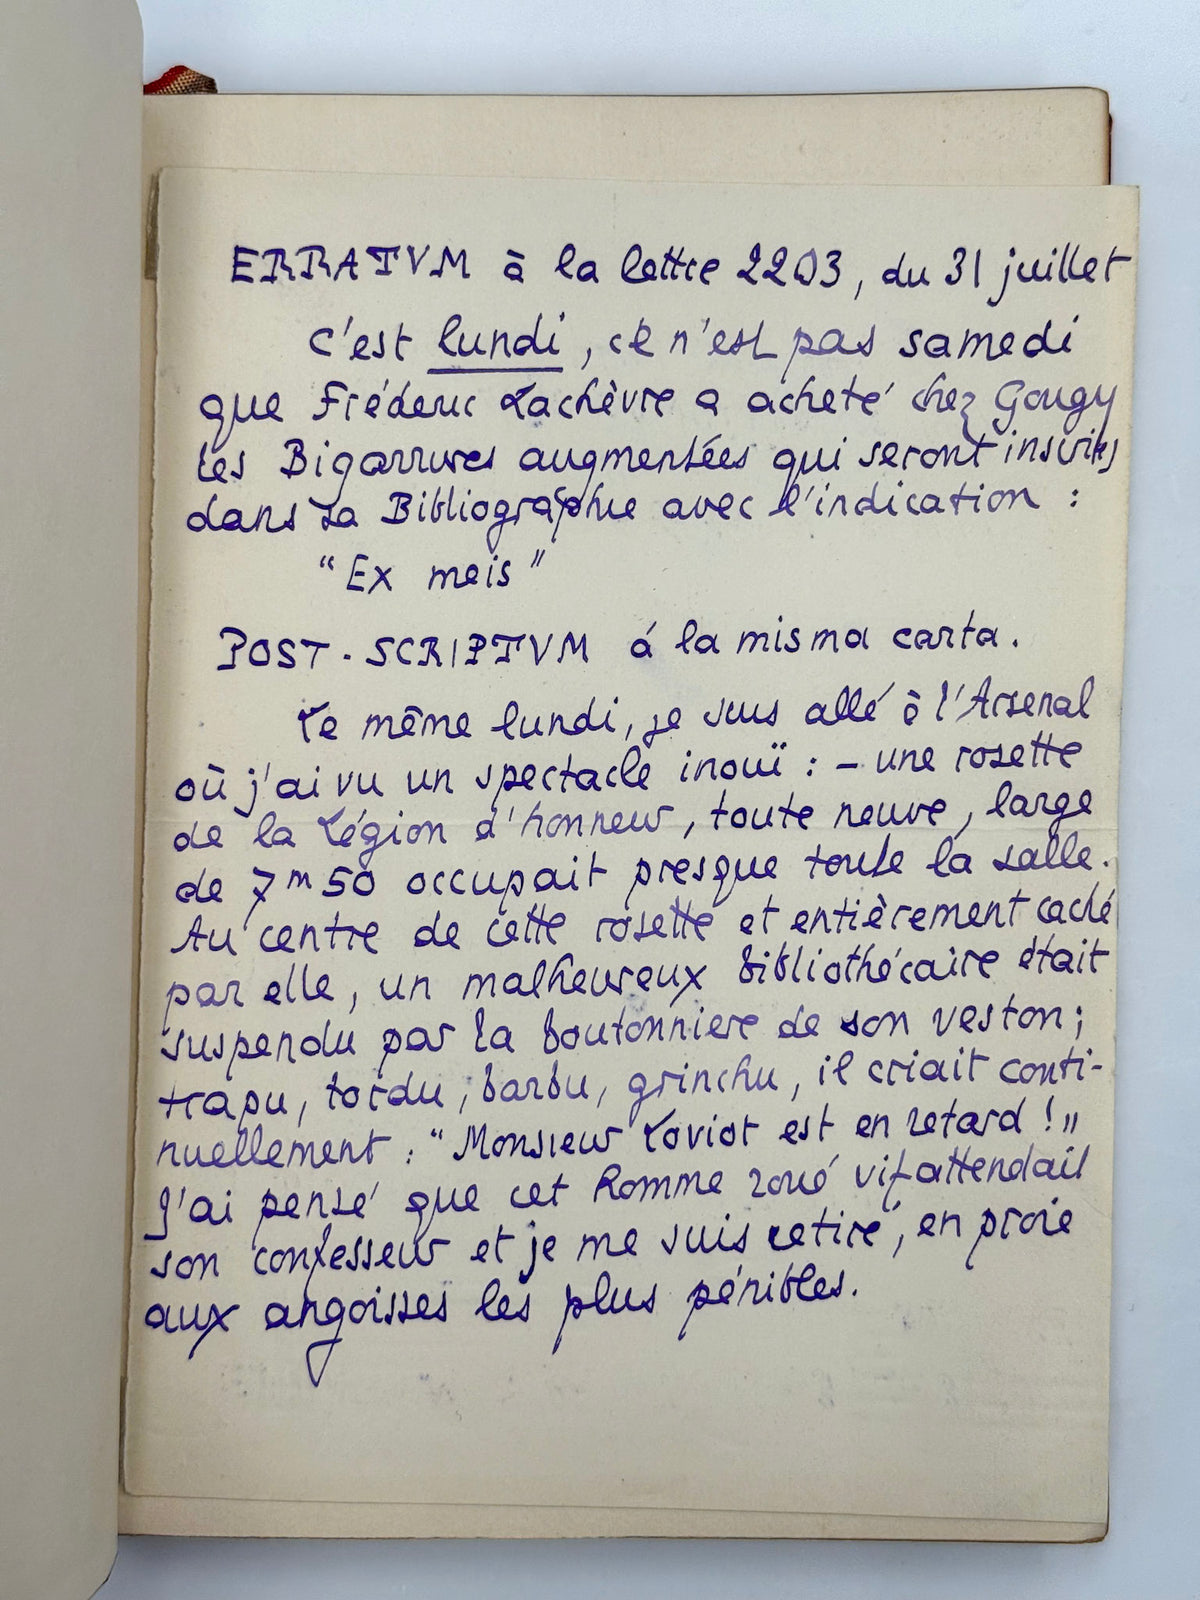 ERRATVM à la lettre 2203, du 31 juillet
C'est lundi, ce n'est pas samedi
que Frédéric Lachèvre a acheté chez Gougy
les Bigarrures augmentées qui seront inscrites
dans sa Bibliographie avec l'indication :
“Ex meis”
POST-SCRIPTVM á la misma carta.
Le même lundi, je suis allé à l'Arsenal
où j'ai vu un spectacle inouï : – une rosette
de la Légion d'honneur, toute neuve, large
de 7m50 occupait presque toute la salle.
Au centre de cette rosette et entièrement caché
par elle, un malheureux bibliothécaire était
suspendu par la boutonniere de son veston ;
trapu, tordu, barbu, grinchu, il criait conti-
nuellement : “Monsieur Loviot est en retard !”
J'ai pensé que cet homme roué vif attendait
son confesseur et je me suis retiré, en proie
aux angoisses les plus pénibles.